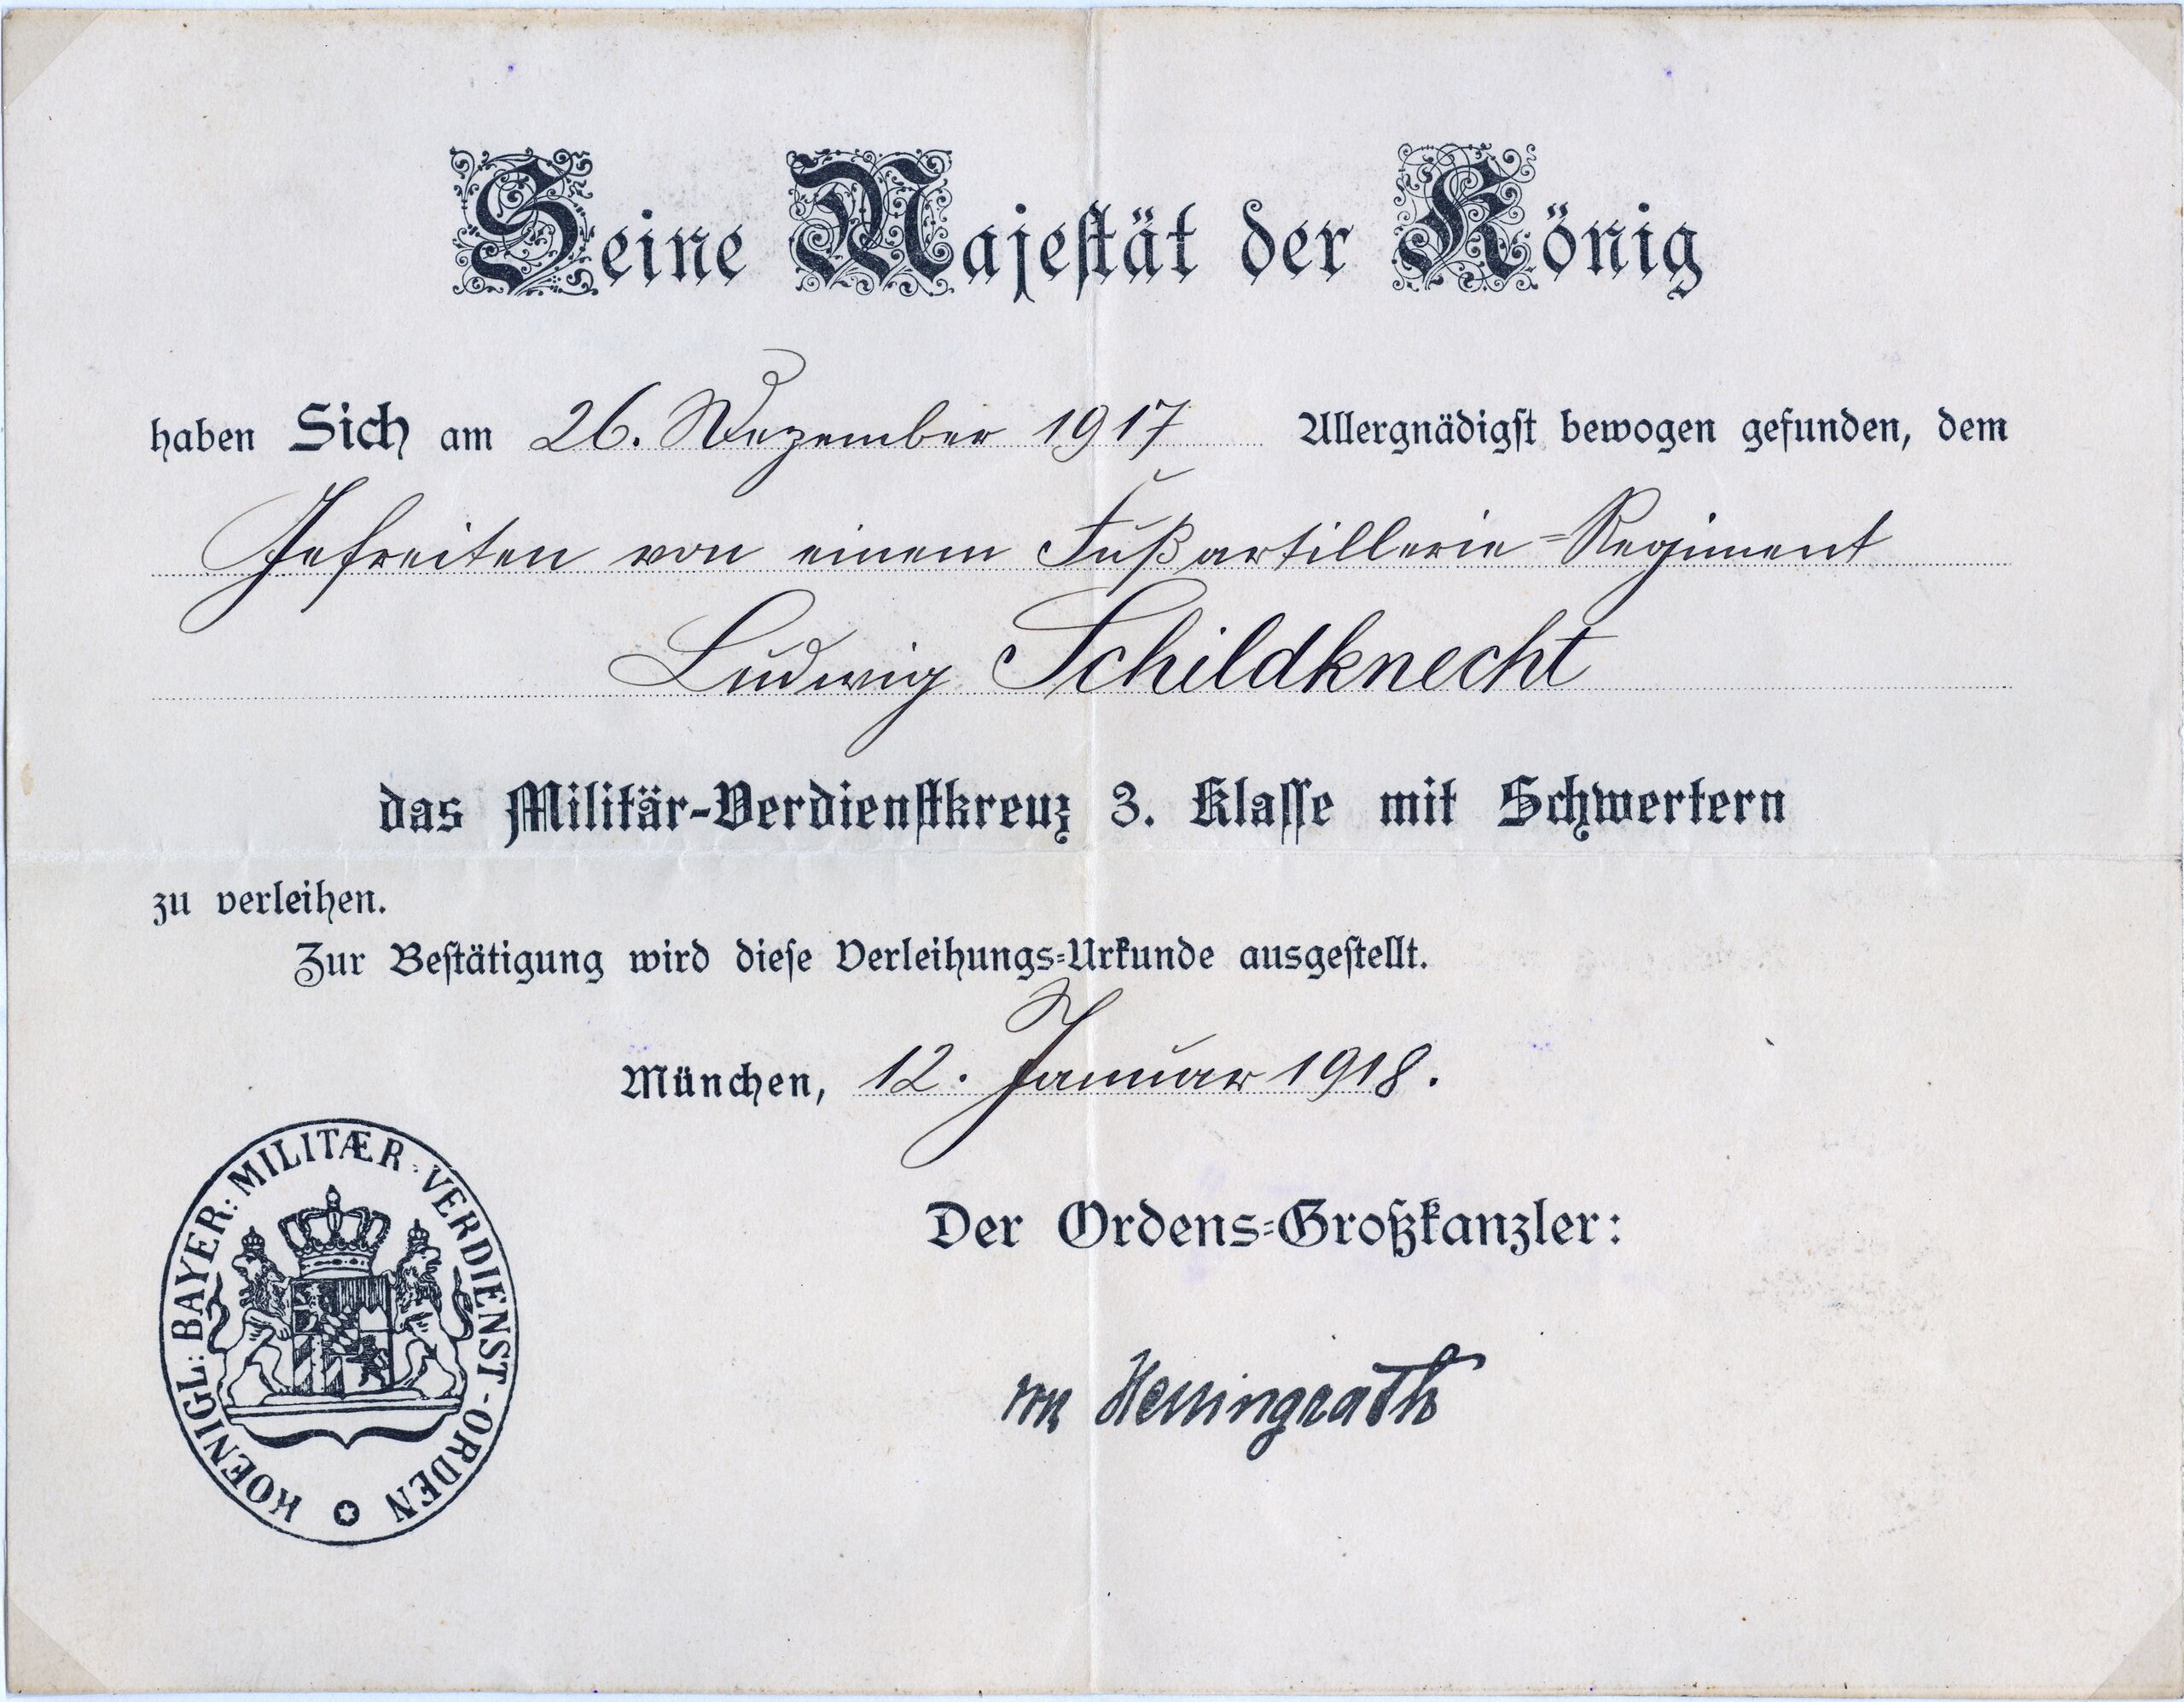 Seine Majestät der König
haben Sich am 26. Dezember 1917 Allergnädigst bewogen gefunden, dem
Gefreiten von einem Fußartillerie=Regiment
Ludwig Schildknecht
das Militär-Verdienstkreuz 3. Klasse mit Schwertern
zu verleihen.
Zur Bestätigung wird diese Verleihungs=Urkunde ausgestellt.
München, 12. Januar 1918.
Der Ordens=Großkanzler:
von Hellingrath
KOENIGL: BAYER: MILITÆR-VERDIENST-ORDEN